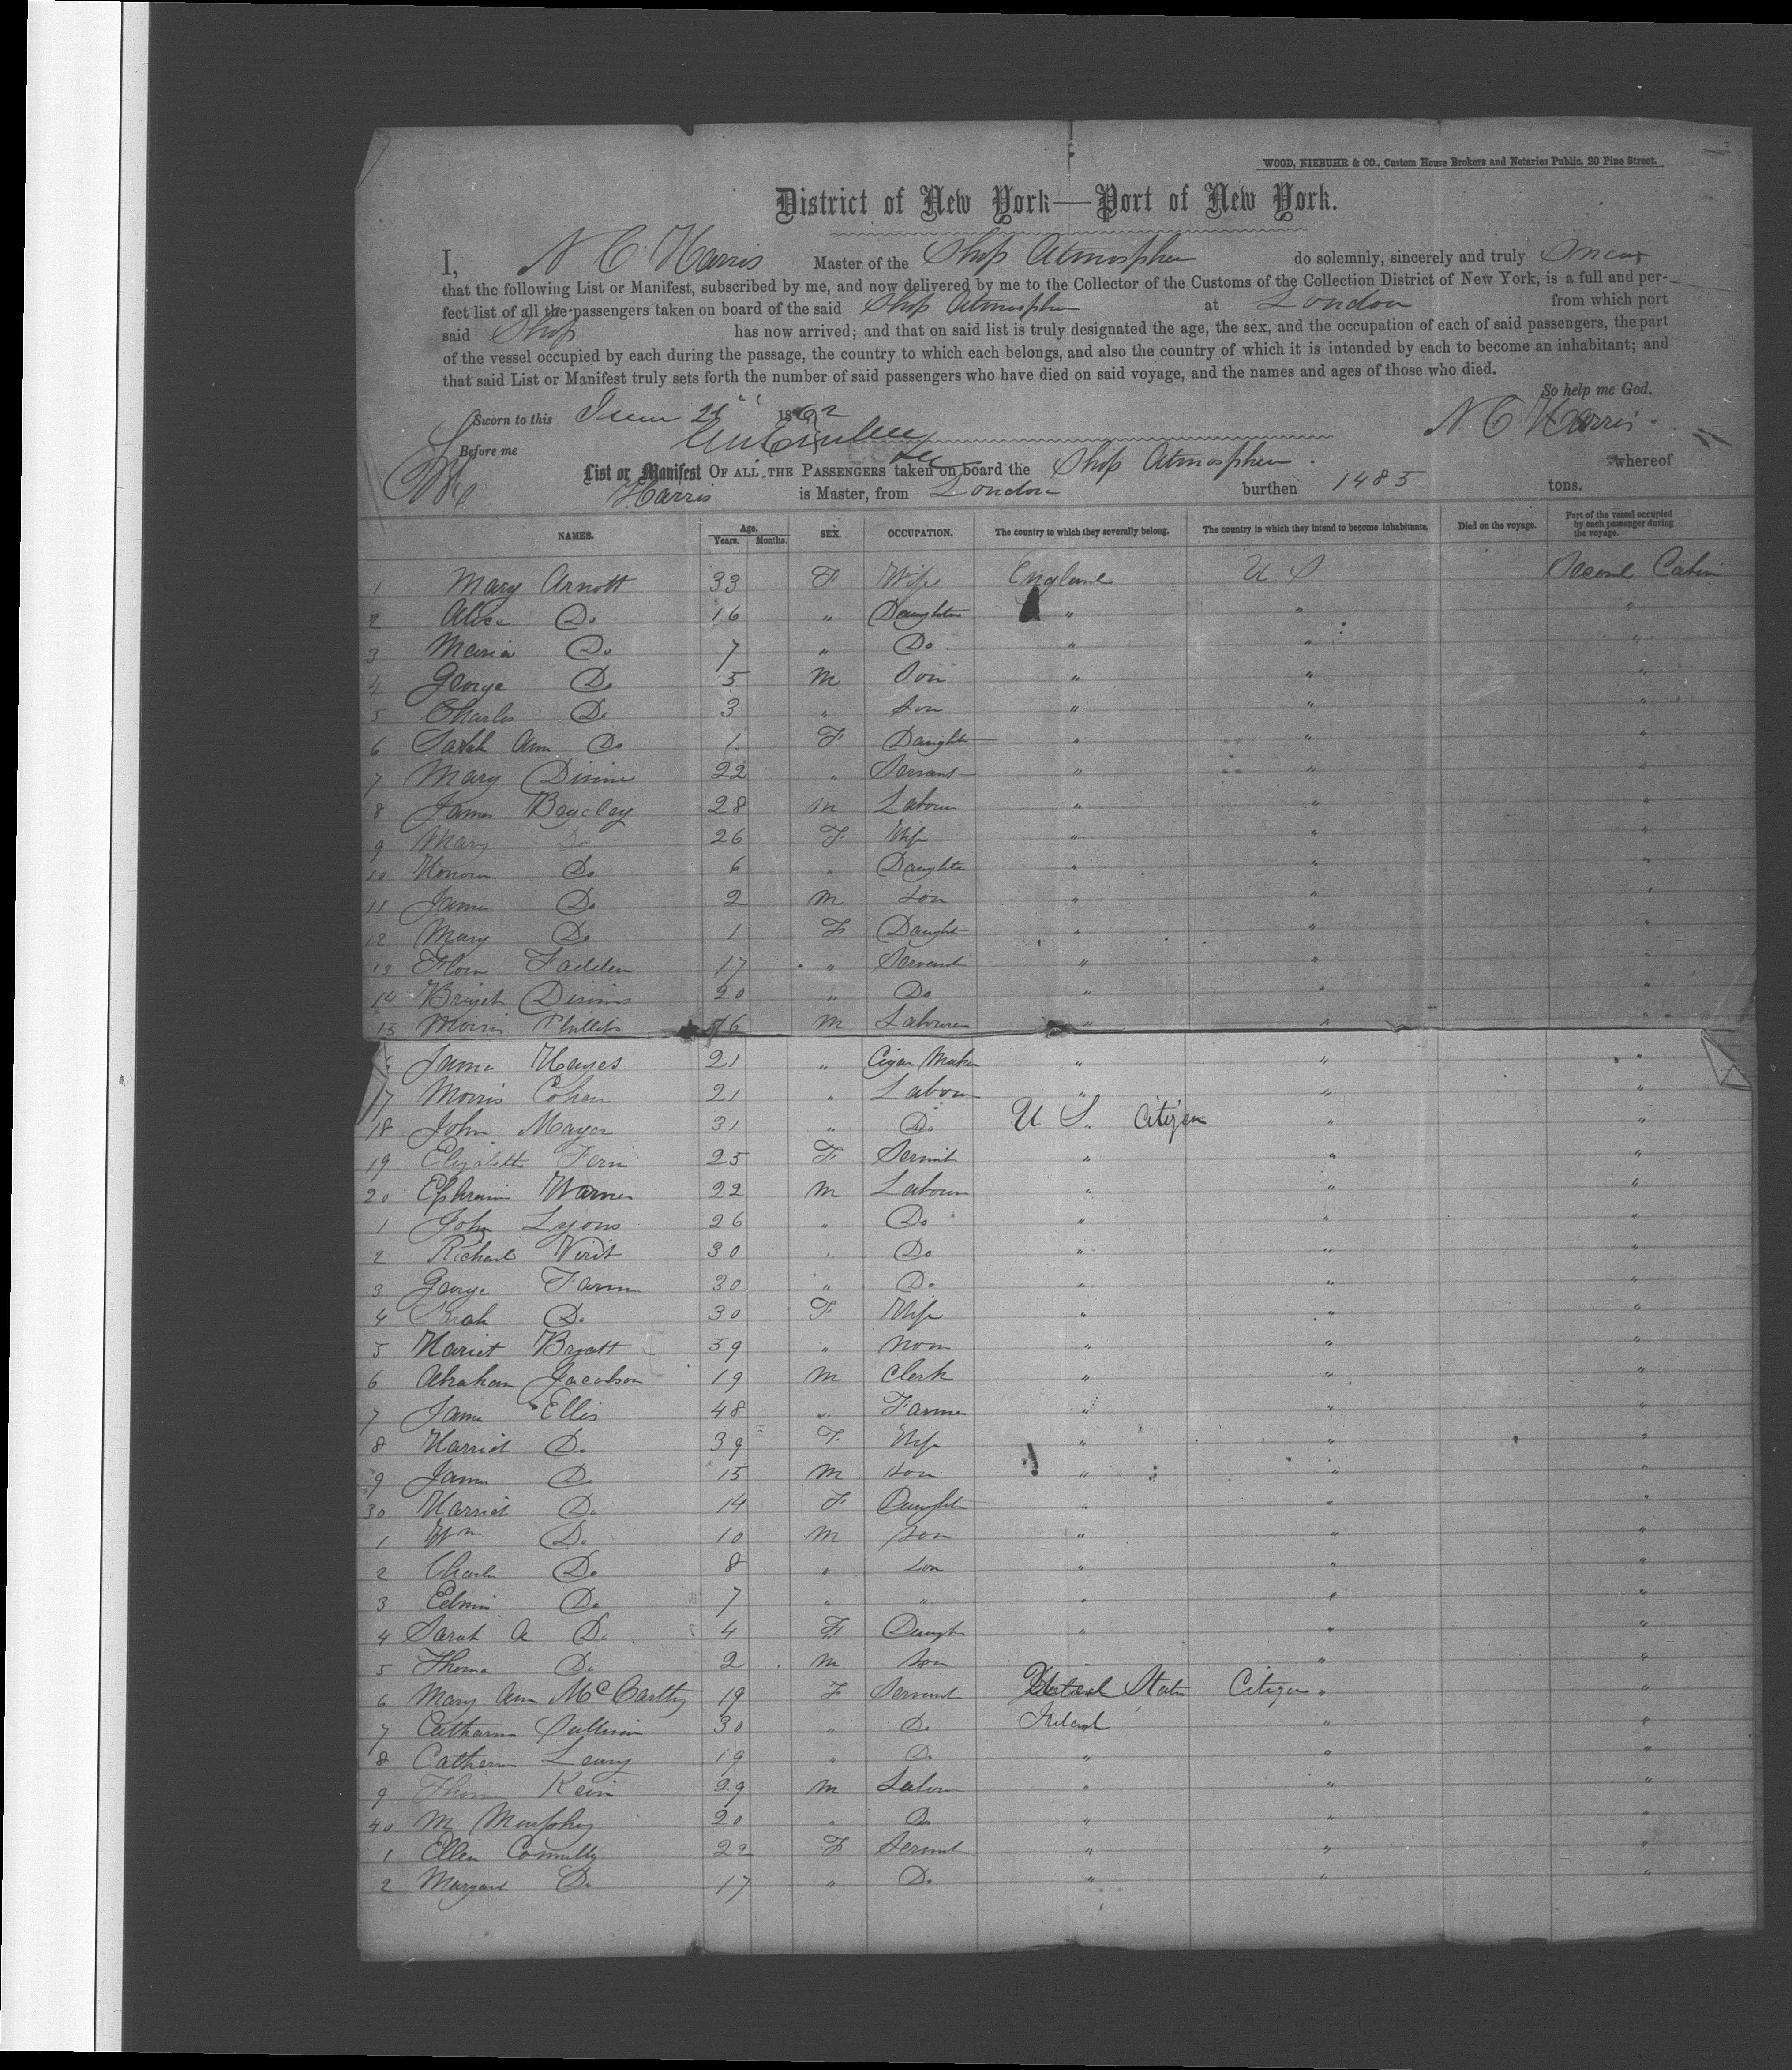 WOOD, NIEBUHR & CO., Custom House Brokers and Notaries Public, 20 Pine Street.
District of New York—Port of New York.
I, N C Harris Master of the Ship Atmosphere do solemnly, sincerely and truly Swear
that the following List or Manifest, subscribed by me, and now delivered by me to the Collector of the Customs of the Collection District of New York, is a full and per-
fect list of all the passengers taken on board of the said Ship Atmosphere at London from which port
said Ship has now arrived; and that on said list is truly designated the age, the sex, and the occupation of each of said passengers, the part
of the vessel occupied by each during the passage, the country to which each belongs, and also the country of which it is intended by each to become an inhabitant; and
that said List or Manifest truly sets forth the number of said passengers who have died on said voyage, and the names and ages of those who died.
So help me God.
Sworn to this June 1862 N C Harris
Before me
List or Manifest OF ALL THE PASSENGERS taken on board the Ship Atmosphere whereof
Harris is Master, from London burthen 1485 tons.
NAMES. Age. Years. Months. SEX. OCCUPATION. The country to which they severally belong. The country in which they intend to become inhabitants. Died on the voyage. Part of the vessel occupied by each passenger during the voyage.
1 Mary Arnott 33 F Wife England U S Second Cabin
2 Alice Do 16 " Daughter " " "
3 Maria Do 7 " Do " " "
4 George Do 5 M Son " " "
5 Charles Do 3 " Son " " "
6 Sarah Ann Do 1 F Daught " " "
7 Mary 22 " Servant " " "
8 James Bagcley 28 M Labour " " "
9 Mary Do 26 F Wife " " "
10 Honora Do 6 " Daughter " " "
11 James Do 2 M Son " " "
12 Mary Do 1 F Daught " " "
13 Fadden 17 " Servant " " "
14 Briget 20 " Do " " "
15 Morris Phillips 6 M Labourer " " "
James Hayes 21 " Cigar Maker " " "
17 Morris Cohen 21 " Labour " " "
18 John Mayer 31 " Do U S. Citizen " "
19 Elizabeth Fern 25 F Servnt " " "
20 Ephraim Warner 22 M Labour " " "
1 John Lyons 26 " Do " " "
2 Richard 30 " Do " " "
3 George Farm 30 " Do " " "
4 Sarah Do 30 F Wife " " "
5 Hariet Byatt 39 " None " " "
6 Abraham Jacobson 19 M Clerk " " "
7 James Ellis 48 " Farmer " " "
8 Harriet Do 39 F Wife " " "
9 James Do 15 M Son " " "
30 Harriet Do 14 F Daughter " " "
1 Wm Do 10 M Son " " "
2 Charles Do 8 " Son " " "
3 Edwin Do 7 " " " " "
4 Sarah A Do 4 F Daught " " "
5 Thomas Do 2 M Son " "
6 Mary Ann McCarthy 19 F Servant United States Citizen " "
7 Catharine Sullivan 30 " Do Ireland " "
8 Catherine Leary 19 " Do " " "
9 Thomas Kein 29 M Labour " " "
40 M Murphy 20 " Do " " "
1 Ellen Connelly 22 F Servnt " " "
2 Margaret Do 17 " Do " " "